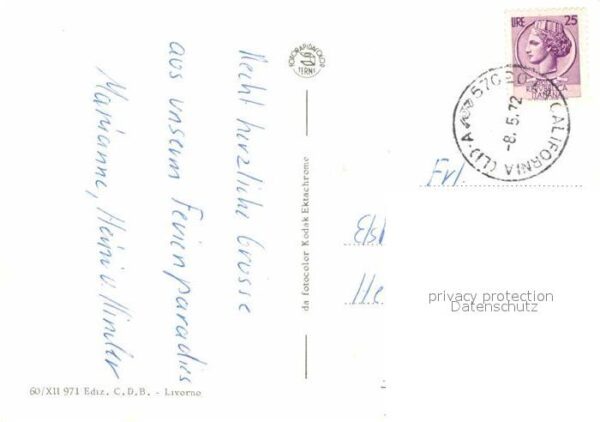 Recht herzliche Grüsse
aus unserm Ferienparadies
Marianne, Heini u. Kinder
FOTORAPIDACOLOR
TERNI
da fotocolor Kodak Ektachrome
60/XII 971 Ediz. C.D.B. - Livorno
LIRE 25
REPUBBLICA
ITALIANA
57020 CALIFORNIA (LI) - A
-8.5.72
Frl.
privacy protection
Datenschutz